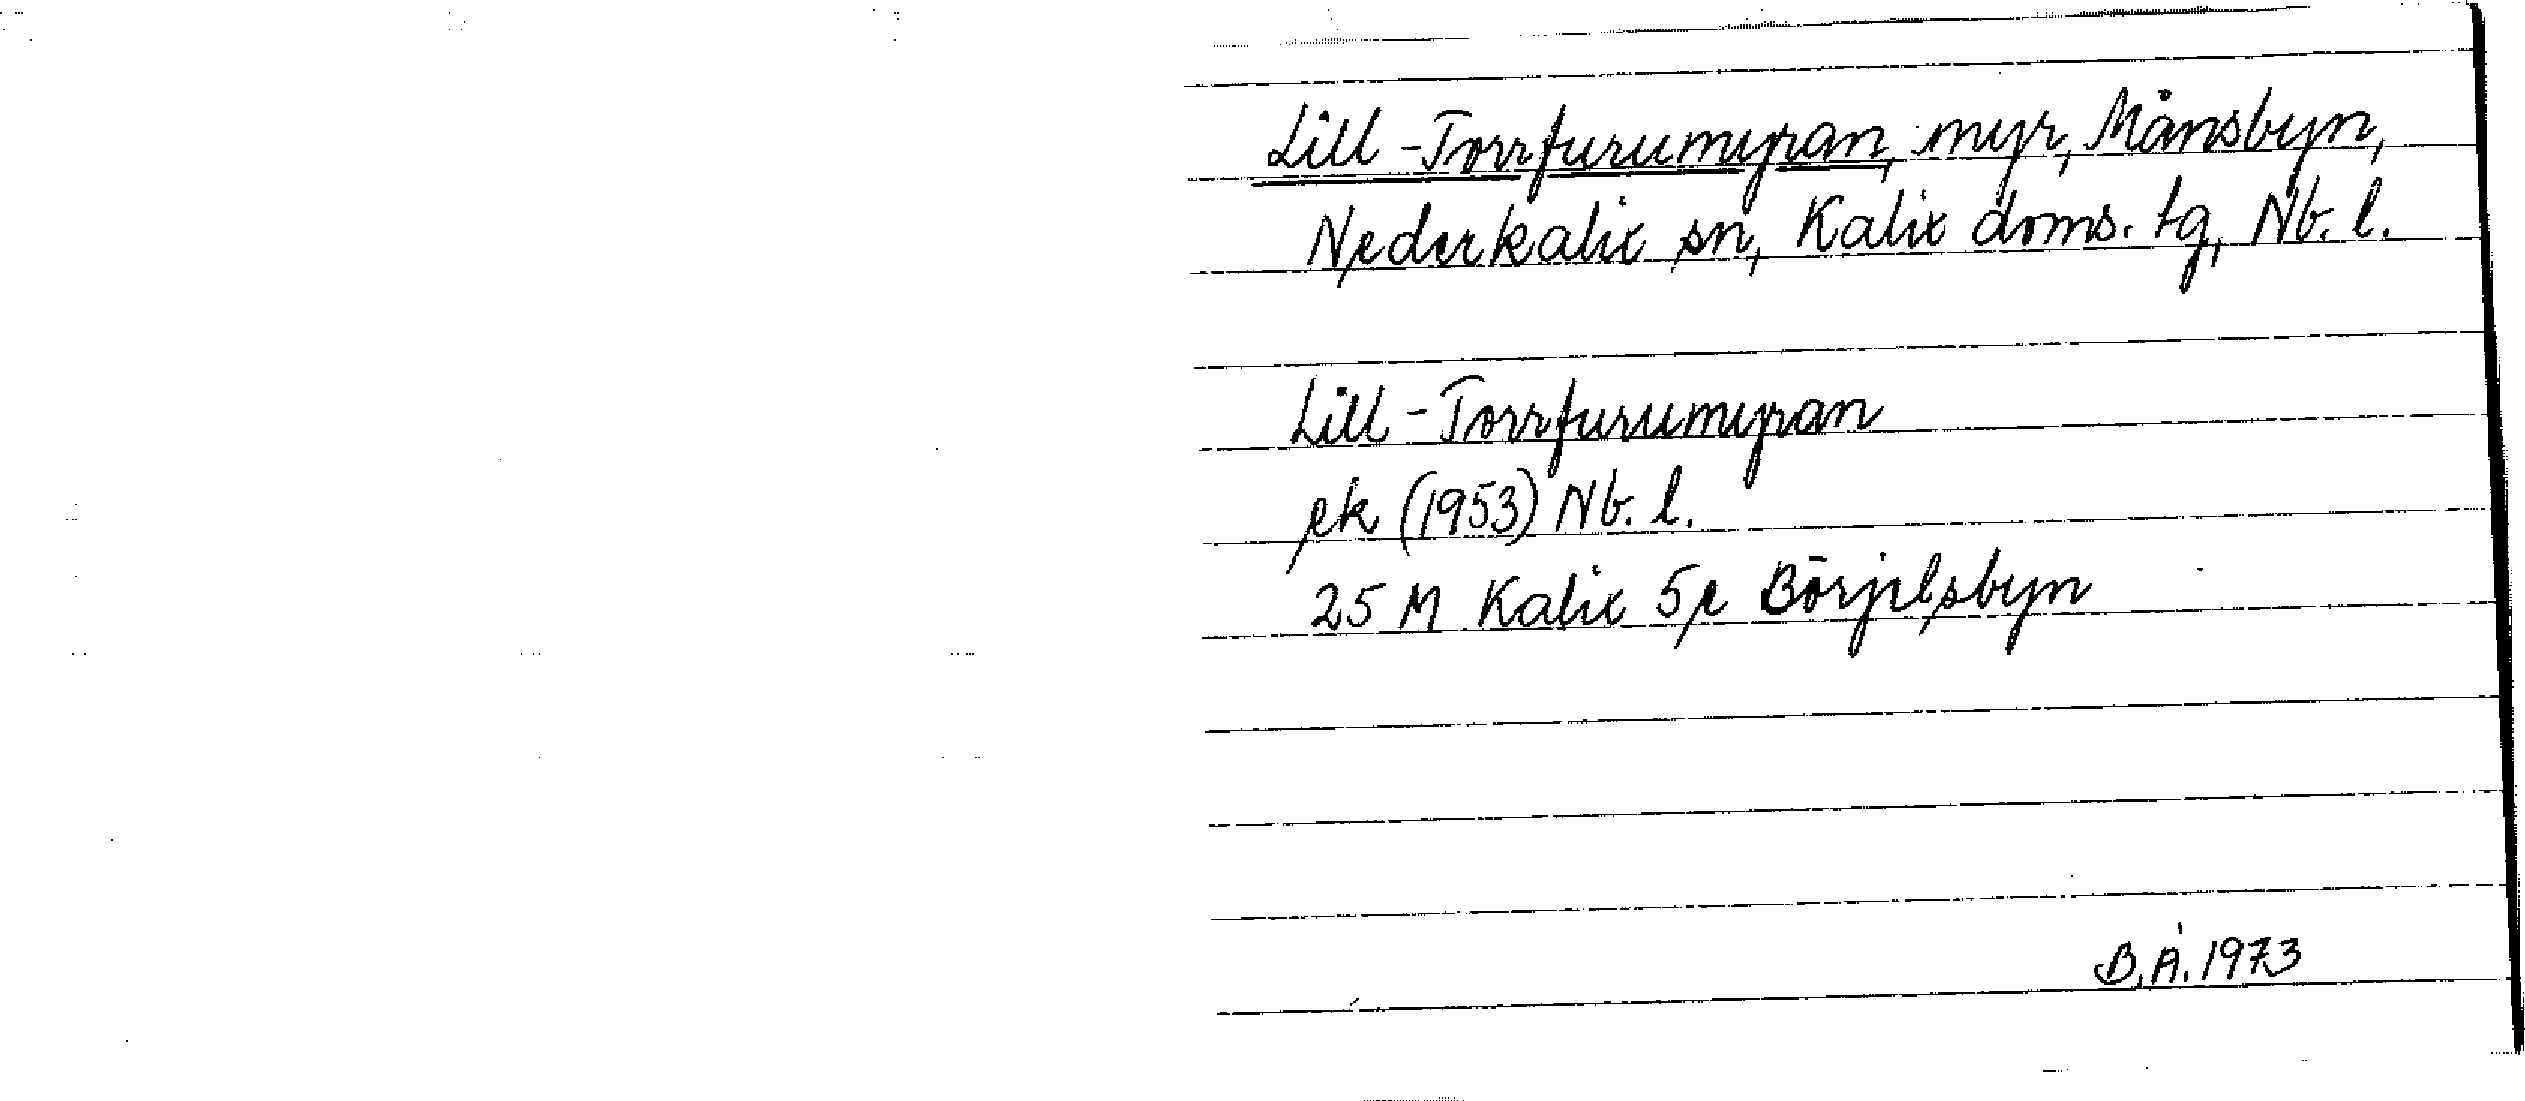 Lill-Torrfurumyran, myr, Månsbyn,
Nederkalix sn, Kalix doms. tg, Nb. l.
Lill-Torrfurumyran
ek (1953) Nb. l.
25 M Kalix 5e Börjelsbyn
B.Å. 1973